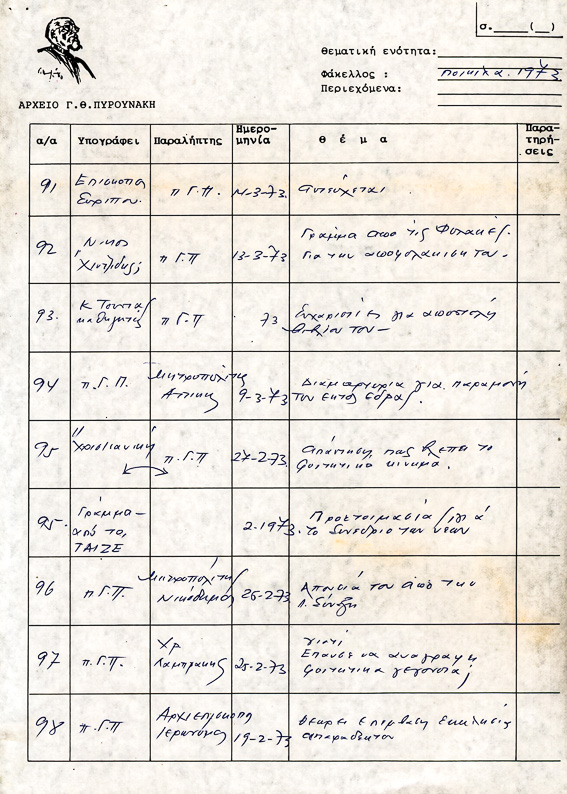 σ.____(__)
Θεματική ενότητα:
Φάκελλος : ποικιλα. 1973
Περιεχόμενα:
ΑΡΧΕΙΟ Γ.Θ.ΠΥΡΟΥΝΑΚΗ
α/α Υπογράφει Παραλήπτης Ημερο-μηνία Θ έ μ α Παρα-τηρή-σεις
91 Επισκοπη
Ευριπου. π Γ.Π. 14-3-73. αντεύχεται.
92 Νικος π Γ Π 13-3-73 Γραμμα απο τις Φυλακές.
Για την αποφυλακιση του.
93. Κ Τουντας
καθηγητής π Γ Π 73 Ευχαριστίες για αποστολή
βιβλίου του
94 π.Γ.Π. Μητροπολίτης
Αττικης 9-3-73 Διαμαρτυρια για παραμονή
του εκτος έδρας.
95 "Χριστιανική" π.Γ.Π 27-2-73. απάντηση, πως βλεπει το
φοιτητικο κινημα.
95. Γράμμα
από το,
ΤΑΙΖΕ 2.1973. Προετοιμασία για
το Συνεδριο των νεων
96 π Γ.Π. Μητροπολίτης
Νικόδημος 26-2-73 Απουσία του απο την
Ι. Σύνοδο
97 π.Γ.Π. Χρ
Λαμπρακης 25-2-73 γιατί
Επαυσε να αναγραφη
φοιτητικα γεγονοτα;
98 π.Γ.Π Αρχιεπισκοπη
Ιερωνυμος 19-2-73 θεωρει επεμβαση εκκλησις
απαραδεκτον